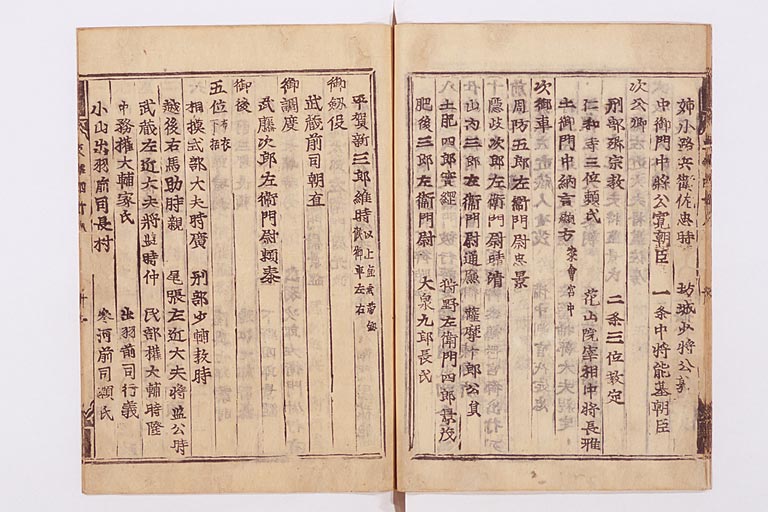 姉小路兵衛佐忠時　坊城少将公敦
中御門中将公寛朝臣　一条中将能基朝臣
次公卿
刑部卿宗教　二条三位教定
仁和寺三位顕氏　花山院宰相中将長雅
土御門中納言顕方
次御車
周防五郎左衛門尉忠景
隠岐次郎左衛門尉時清
山内三郎左衛門尉通廉　薩摩十郎公員
土肥四郎実経　狩野左衛門四郎景茂
肥後三郎左衛門尉　大泉九郎長氏
平賀新三郎維時 以上 御車左右
御剱役
武蔵前司朝直
御調度
武藤次郎左衛門尉頼泰
御後
五位 布衣下括
相模式部大夫時廣　刑部少輔教時
越後右馬助時親　尾張左近大夫将監公時
武蔵左近大夫将監時仲　民部権大輔時隆
中務権大輔家氏　出羽前司行義
小山出羽前司長村　寒河前司顕氏